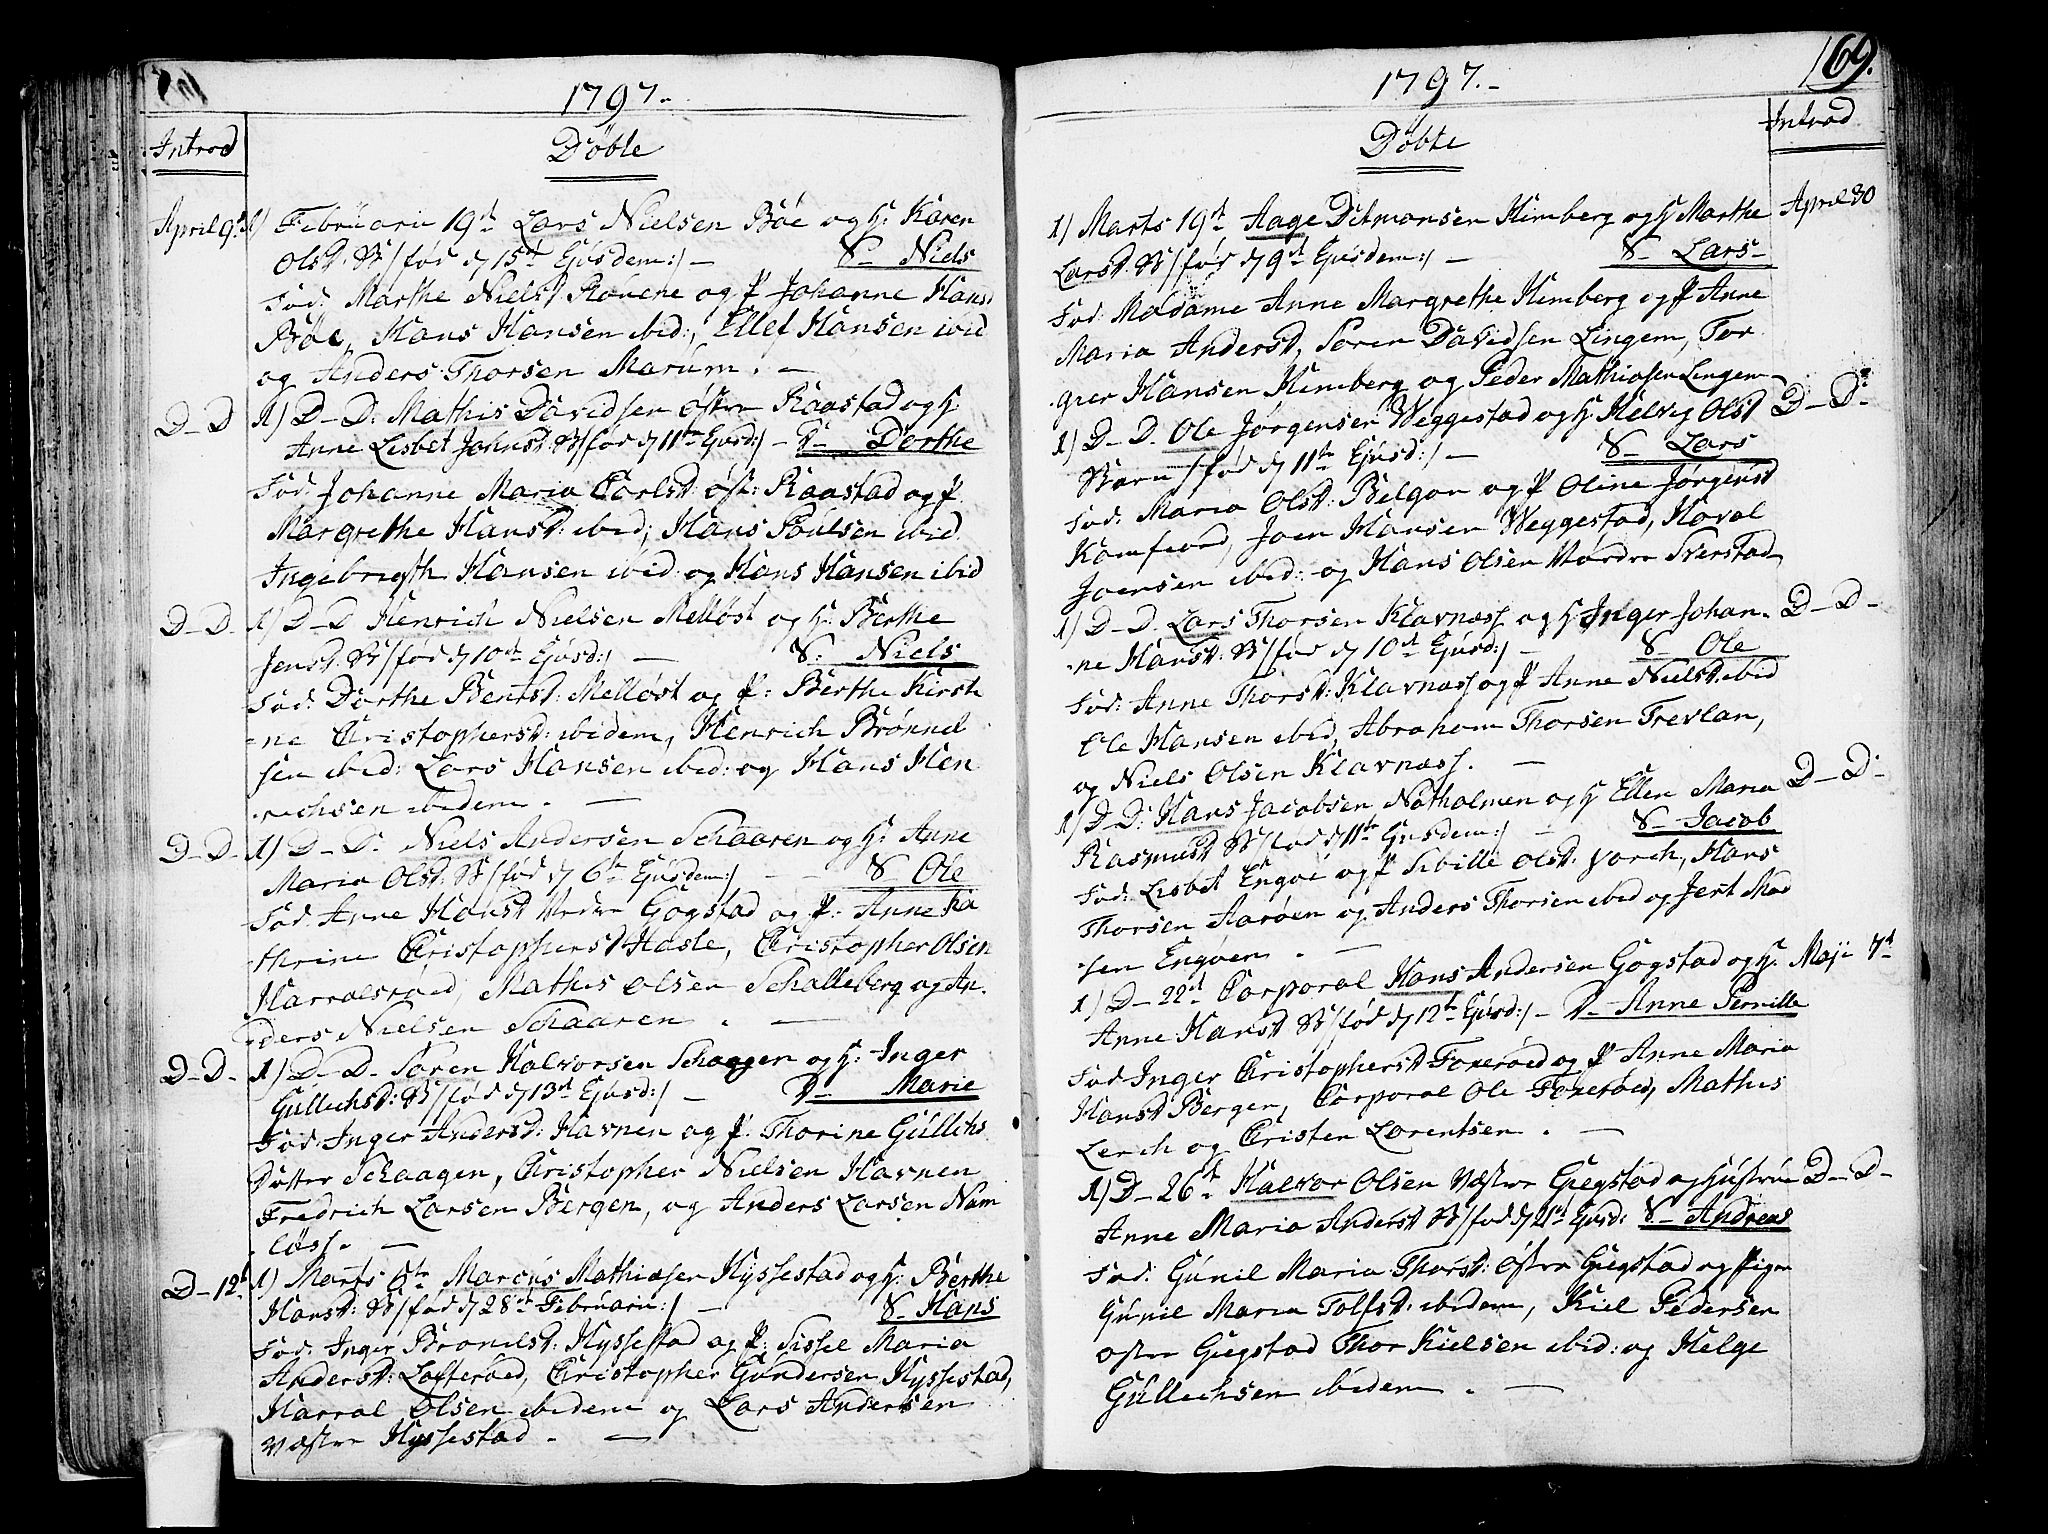 1797.
Introd
Döbte
April 9d 1) Februarii 19d Lars Nielsen Böe og H: Karen
Olsd. B /: föd d 15d Ejusdem :/ - S- Niels
Fad: Marthe Nielsd Röuene og P Johanne Hans
Böe, Hans Hansen ibid:, Ellef Hansen ibid
og Anders Thorsen Marúm. -
D-D 1) D-D: Mathis Davidsen östre Raastad og H
Anne Lisbet Johnsd: B /: föd d 11te Ejusd: / - D- Dorthe
Fad: Johanne Maria Carlsd: öst: Raastad og P.
Margrethe Hansd: ibid; Hans Poulsen ibid
Ingebrigth Hansen ibid og Hans Hansen ibid
D-D- 1) D-D Henrich Nielsen Melløst og H: Berthe
Jensd: B /: föd d 10de Ejusd: / - S: Niels
Fad: Dorthe Bentsd: Melløst og P: Berthe Kirsti
ne Christophersd: ibidem, Henrich Brönnel
sen ibid: Lars Hansen ibid: og Hans Hen
richsen ibidem. -
D-D- 1) D-D: Niels Andersen Schaaren og H: Anne
Maria Olsd: B /: föd d 6te Ejusdem :/ - - S- Ole
Fad: Anne Hansd Nedre Gogstad og P: Anne Ka
thrine Christophersd Hasle, Christopher Olsen
Harralsrøed, Mathis Olsen Schalleberg og An.
ders Nielsen Schaaren. -
D-D- 1) D-D- Sören Halvorsen Schaagen og H: Inger
Gullichsd: B /: föd d 13d Ejusd: / - D- Marie
Fad: Inger Andersd: Havnen og P. Thorine Gullichs
Datter Schaagen, Christopher Nielsen Havnen
Fredrich Larsen Bergen, og Anders Larsen Nam
löss. -
D-12t 1) Marts 5te Marcus Mathiasen Hyssestad og H: Berthe
Hansd: B /: föd d 28d Februarii: / - S- Hans
Fad: Inger Bronilsd: Hyssestad og P: Sissel Maria
Andersd: Lofterøed, Christopher Gundersen Hyssestad,
Harral Olsen ibidem og Lars Andersen
Vestre Hyssestad. -
1797.-
169.
Döbte
Introd
1) Marts 19d Aage Ditmansen Himberg og H Marthe April 30
Larsd. B /: föd d 9d Ejusdem :/ - S- Lars-
Fad: Madame Anne Margrethe Himberg og P Anne
Maria Andersd, Sören Davidsen Lingem, Tor
gier Hansen Himberg og Peder Mathiasen Lingem
1) D-D. Ole Jørgensen Weggestad og H: Helvig Olsd D-D-
Barn /: föd d 11te Ejusd: / - S- Lars
Fad: Maria Olsd: Belgau og P Oline Jørgensd
Kamfiord, Joen Hansen Weggestad, Haral
Joensen ibid: og Hans Olsen Nordre Sverstad
1) D-D. Lars Thorsen Klavnæss og H Inger Johan- D-D-
ne Hansd: B /: föd d 10d Ejusd: / - S- Ole
Fad: Anne Thorsd: Klavnæss og P Anne Nielsd ibid
Ole Hansen ibid, Abraham Thorsen Trevlan,
og Niels Olsen Klavnæss. -
1) D-D: Hans Jacobsen Natholmen og H Ellen Maria D-D-
Rasmusd B /: föd d 11te Ejusdem :/ - S- Jacob
Fad: Lisbet Engöe og P Sibille Olsd: Vorch, Hans
Thorsen Aarøen og Anders Thorsen ibid og Jert Mad
sen Engöen. -
1) D-22d Corporal Hans Andersen Gogstad og H: Maji 7d
Anne Hansd B /: föd d 12te Ejusd: / - D- Anne Pernille
Fad: Inger Christophersd Foxerøed og P Anne Maria
Hansd Bergen, Corporal Ole Foxerøed, Mathis
Lerch og Christen Lorentsen. -
1) D-26te Halvor Olsen Vestre Giegstad og Hustrue D-D-
Anne Maria Andersd B /: föd d 21d Ejusd: S- Andreas
Fad: Gunil Maria Thorsd: östre Giegstad og Pigen
Gunil Maria Tolfsd: ibidem, Kiel Pedersen
östre Giegstad Thor Kielsen ibid: og Helge
Gullechsen ibidem. -